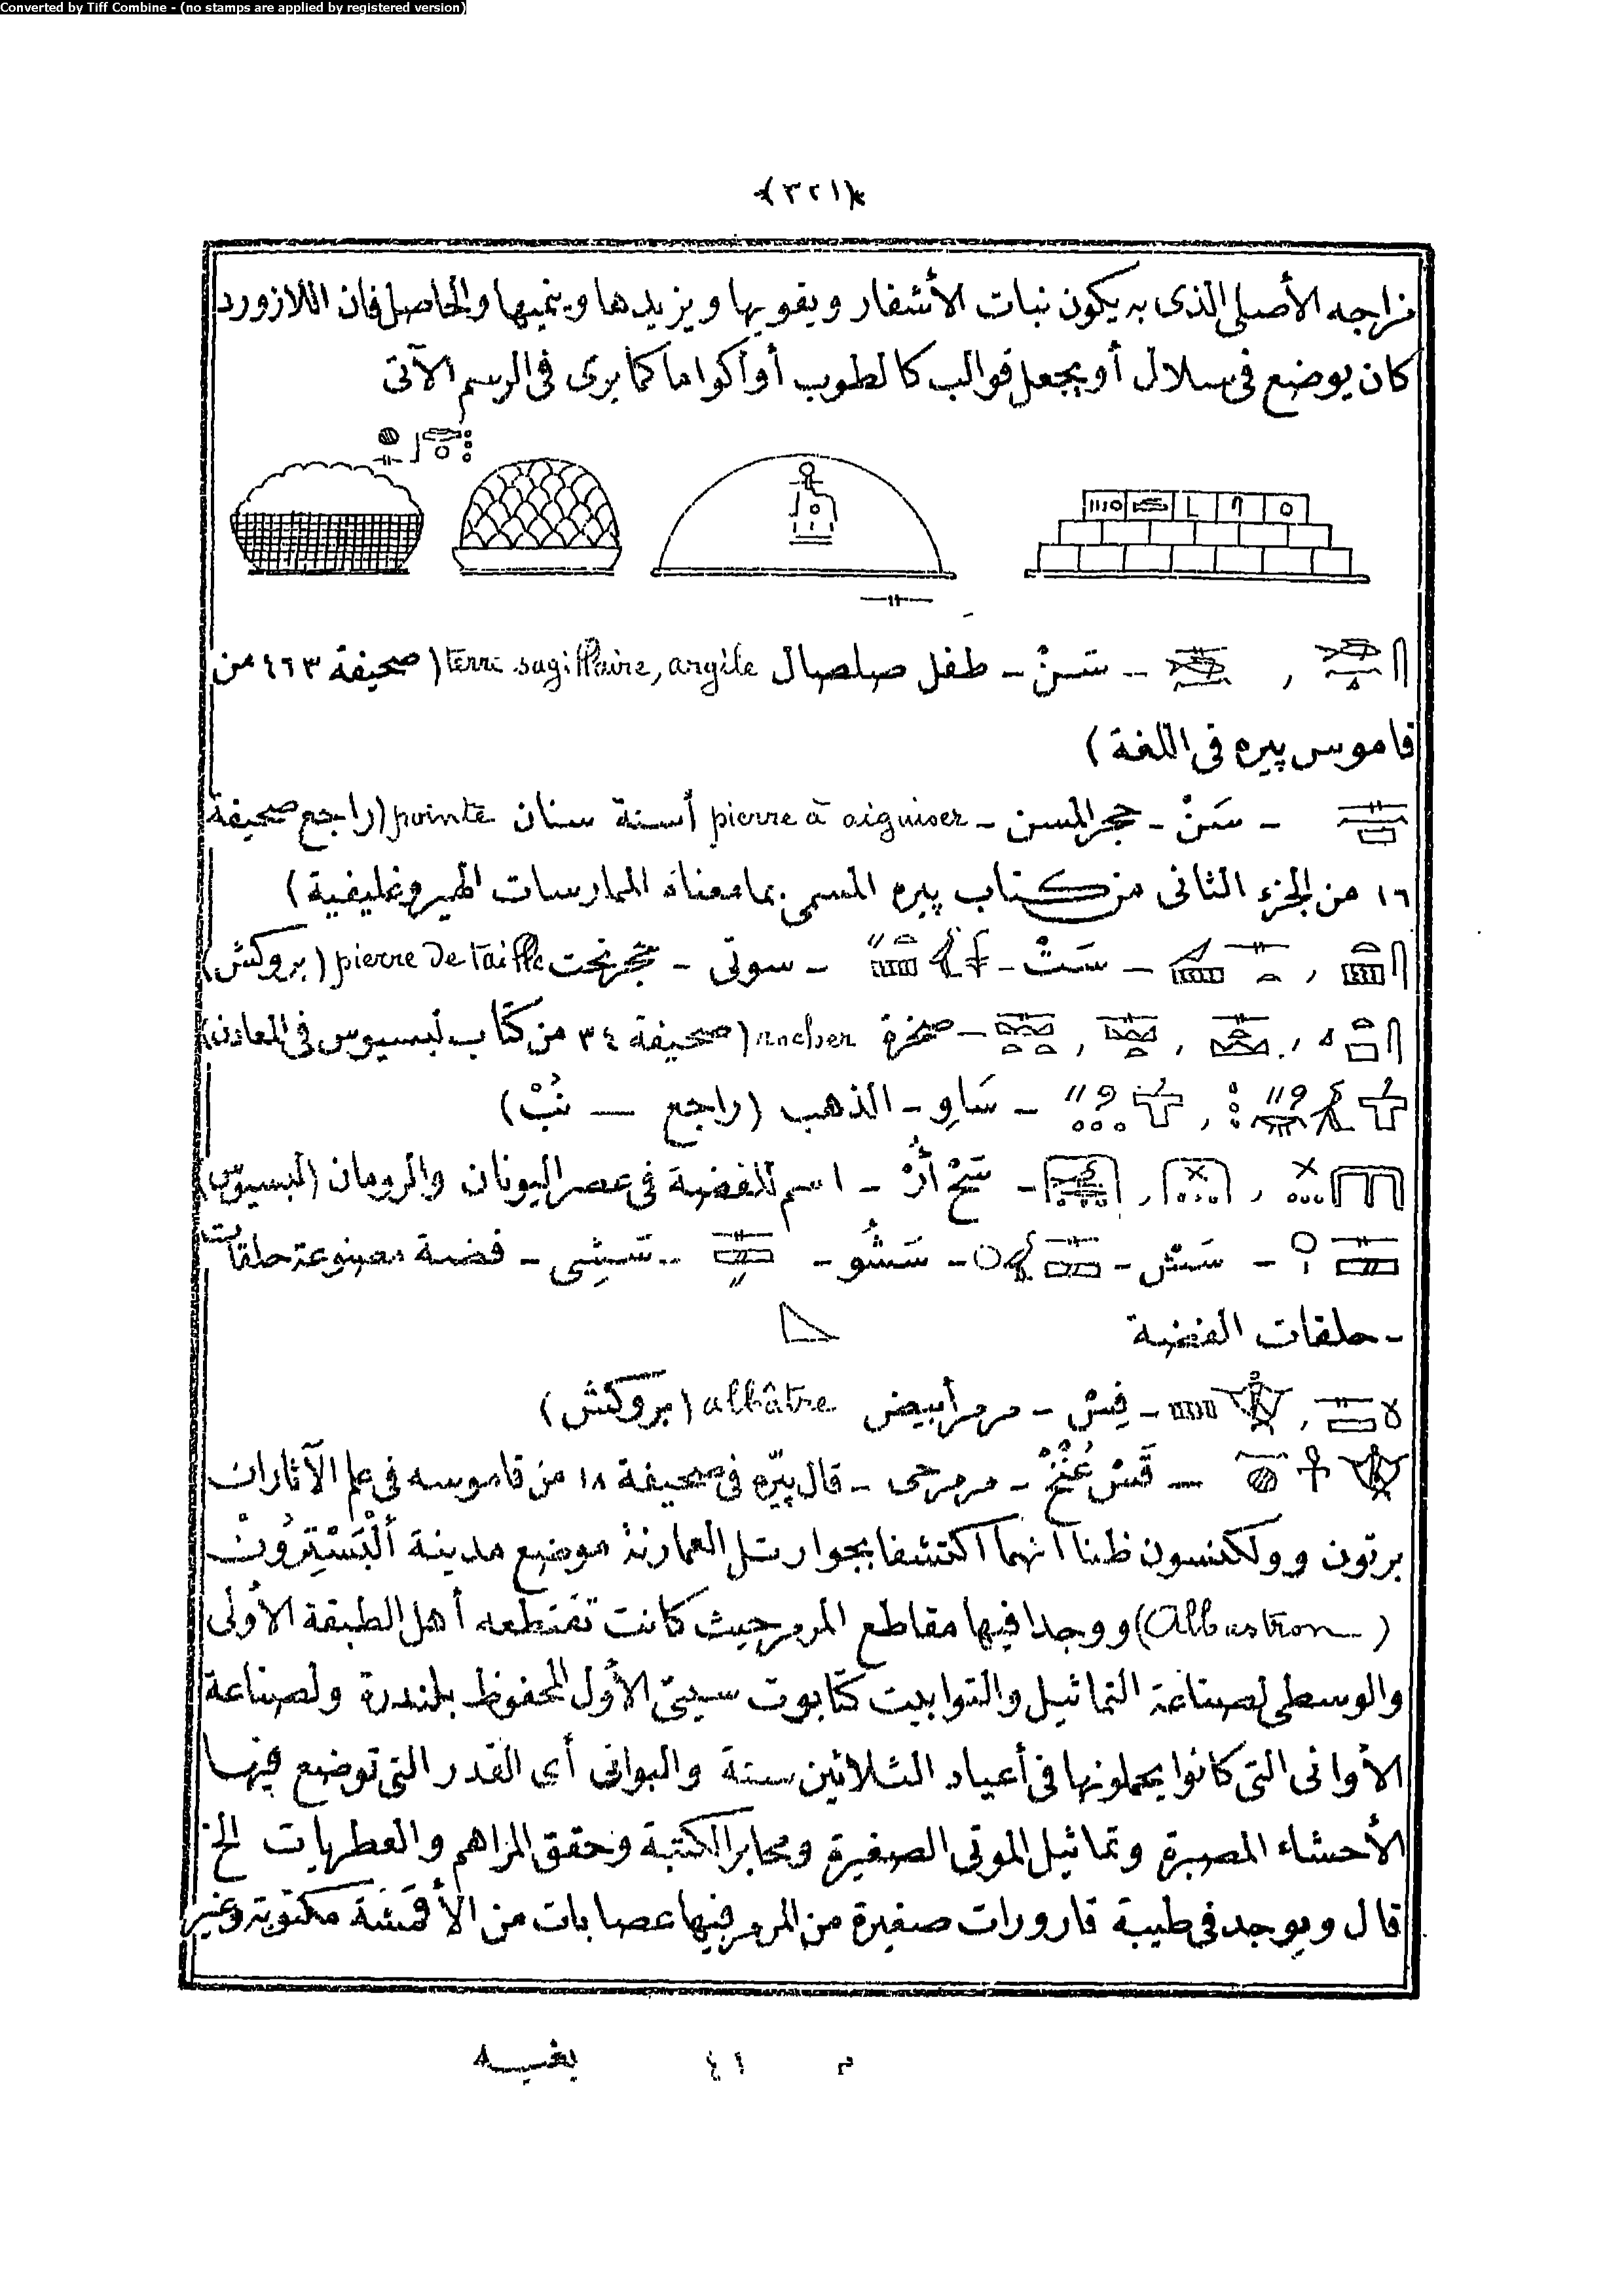 Converted by Tiff Combine - (no stamps are applied by registered version)
(٣٢١)
مزاجه الأصلى الذى به يكون نبات الأشفار ويقويها ويزيدها وينميها والحاصل فان اللازورد
كان يوضع فى سلال أو يجعل قوالب كالطوب أو أكواما كما يرى فى الرسم الآتى
ـ سَـنْ ـ طفل صلصال terre sagillaire, argile (صحيفة ٤٦٣ من
قاموس پيره فى اللغة)
ـ سَنْ ـ حجر المسن ـ pierre à aiguiser أسنة سنان pointe (راجع صحيفة
١٦ من الجزء الثانى من كتاب پيره المسمى بما معناه الممارسات الهيروغليفية)
ـ سَتْ ـ ـ سوتى ـ حجر نحت pierre de taille (بروكش)
ـ صخرة rocher (صحيفة ٣٤ من كتاب لبسيوس فى المعادن)
ـ سَاوِ ـ الذهب (راجع ــ نُبْ)
ـ اسم للفضة فى عصر اليونان والرومان (لبسيوس)
ـ سَشْ ـ ـ سَشُو ـ ـ سَشِى ـ فضة مصنوعة حلقات
ـ حلقات الفضة
ـ قِسْ ـ مرمر أبيض albâtre (بروكش)
ـ قَسْ عُنْخْ ـ مرمر حى ـ قال پيّره فى صحيفة ١٨ من قاموسه فى علم الآثار ان
برتون وولكنسون ظنا انهما اكتشفا بجوار تل العمارنة موضع مدينة ألْبَسْتِرُونْ
(Albastron) ووجدا فيها مقاطع المرمر حيث كانت تقتطعه أهل الطبقة الأولى
والوسطى لصناعة التماثيل والتوابيت كتابوت سيتى الأول المحفوظ بلندرة ولصناعة
الأوانى التى كانوا يحملونها فى أعياد الثلاثين سنة والبوانى أى القدر التى توضع فيها
الأحشاء المصبرة وتماثيل الموتى الصغيرة ومحابر الكتبة وحقق المراهم والعطريات الخ
قال ويوجد فى طيبة قارورات صغيرة من المرمر فيها عصابات من الأقمشة مكتوبة وغير
م ٤١ بغيــه